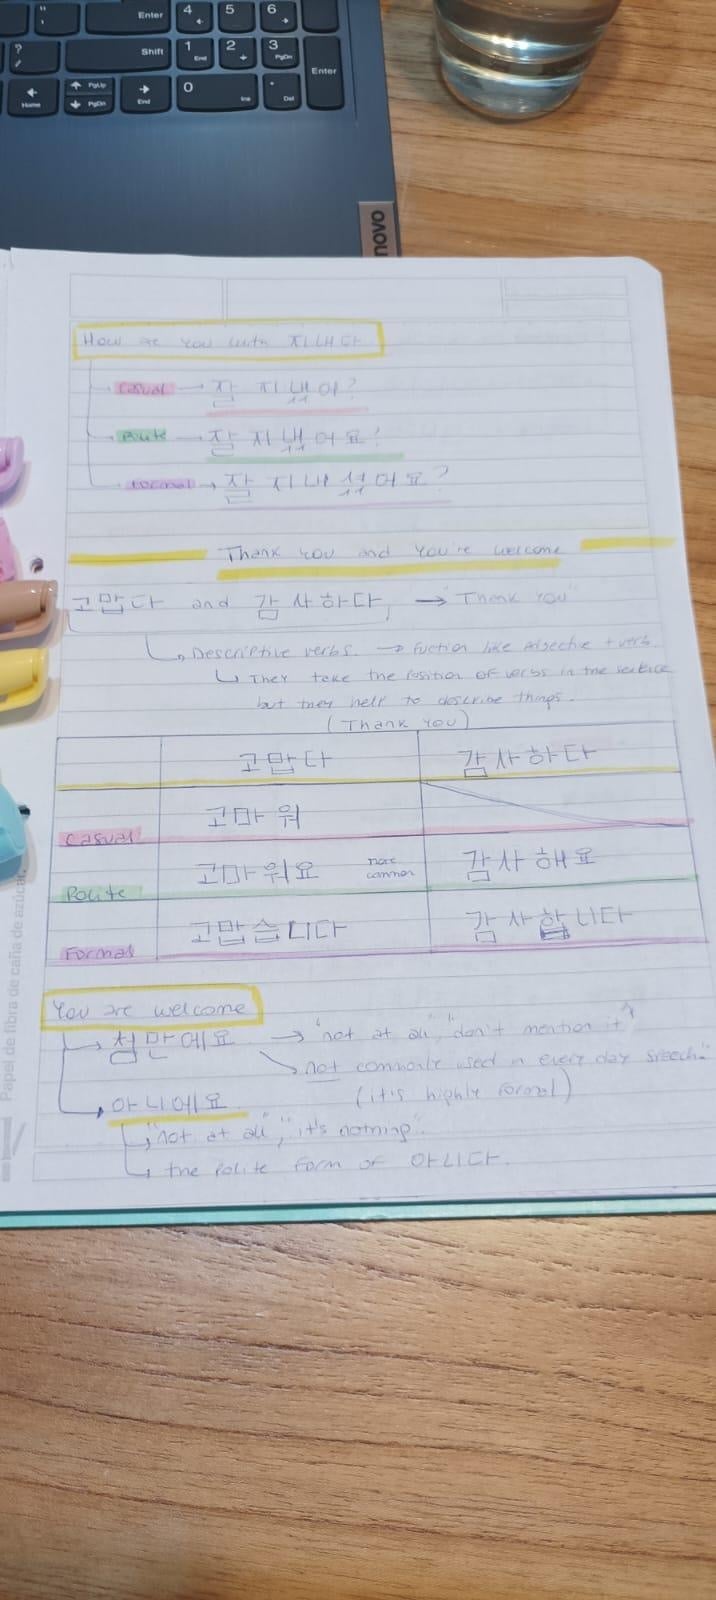 "
'
Enter
4
5
6
?
/
Shift
1
End
2
3
PgDn
Home
PgUp
PgDn
End
0
Ins
.
Del
Enter
novo
How are you with 지내다
Casual → 잘 지냈어?
Polite → 잘 지냈어요?
Formal → 잘 지내셨어요?
Thank you and you're welcome
고맙다 and 감사하다 → "Thank you"
Descriptive verbs. → Fuction like Adjective + verb.
They take the position of verbs in the
but they help to describe things.
(Thank you)
고맙다 감사하다
Casual 고마워
Polite 고마워요 more common 감사해요
Formal 고맙습니다 감사합니다
You are welcome
첨만에요 → "not at all", "don't mention it"
not commonly used in every day speech.
(it's highly formal)
아니에요
"not at all", "it's nothing".
the polite form of 아니다.
Papel de fibra de caña de azúcar.